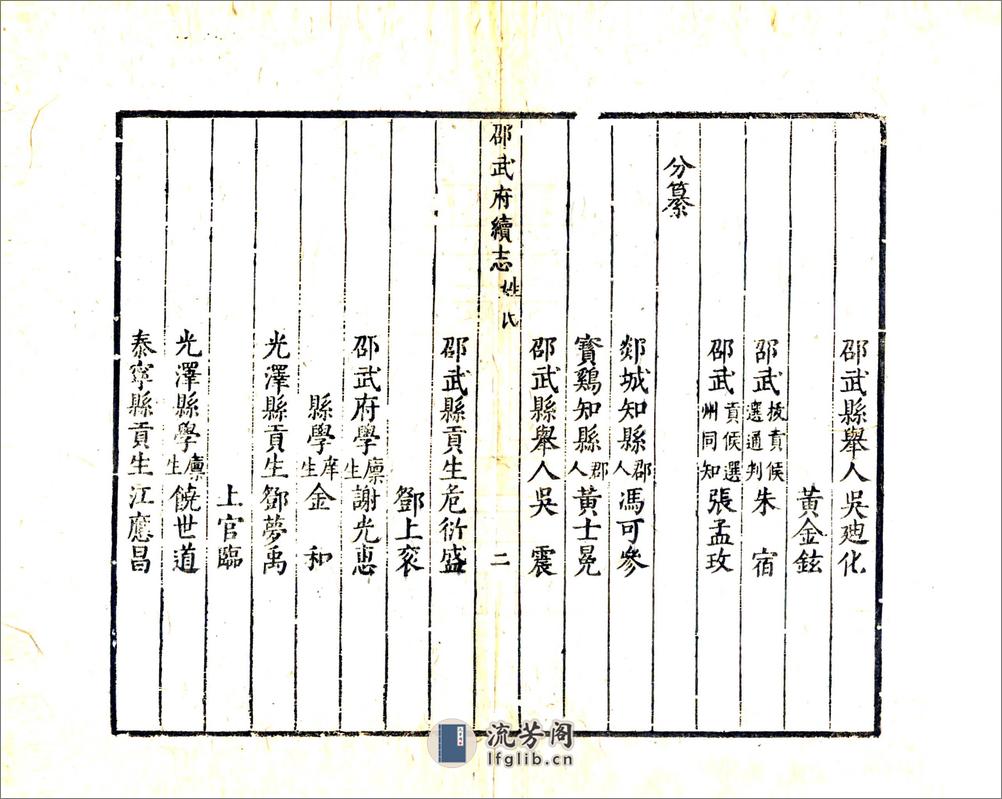 邵武縣舉人吳廸化
黃金鉉
邵武拔貢候選通判朱宿
邵武貢候選州同知張孟玫
分纂
郯城知縣郡人馮可參
寳鷄知縣郡人黃士晃
邵武縣舉人吳震
邵武府續志 姓氏 二
邵武縣貢生危衍盛
鄧上衮
邵武府學廪生謝光惠
縣學庠生金和
光澤縣貢生鄧夢禹
上官臨
光澤縣學廪生饒世道
泰寧縣貢生江應昌
流芳阁
lfglib.cn